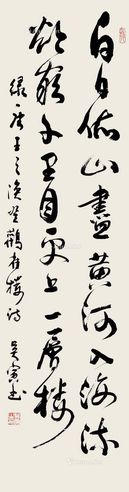 白日依山盡黄河入海流
欲窮千里目更上一層樓
録唐王之渙登鸛雀樓詩 吴寅書